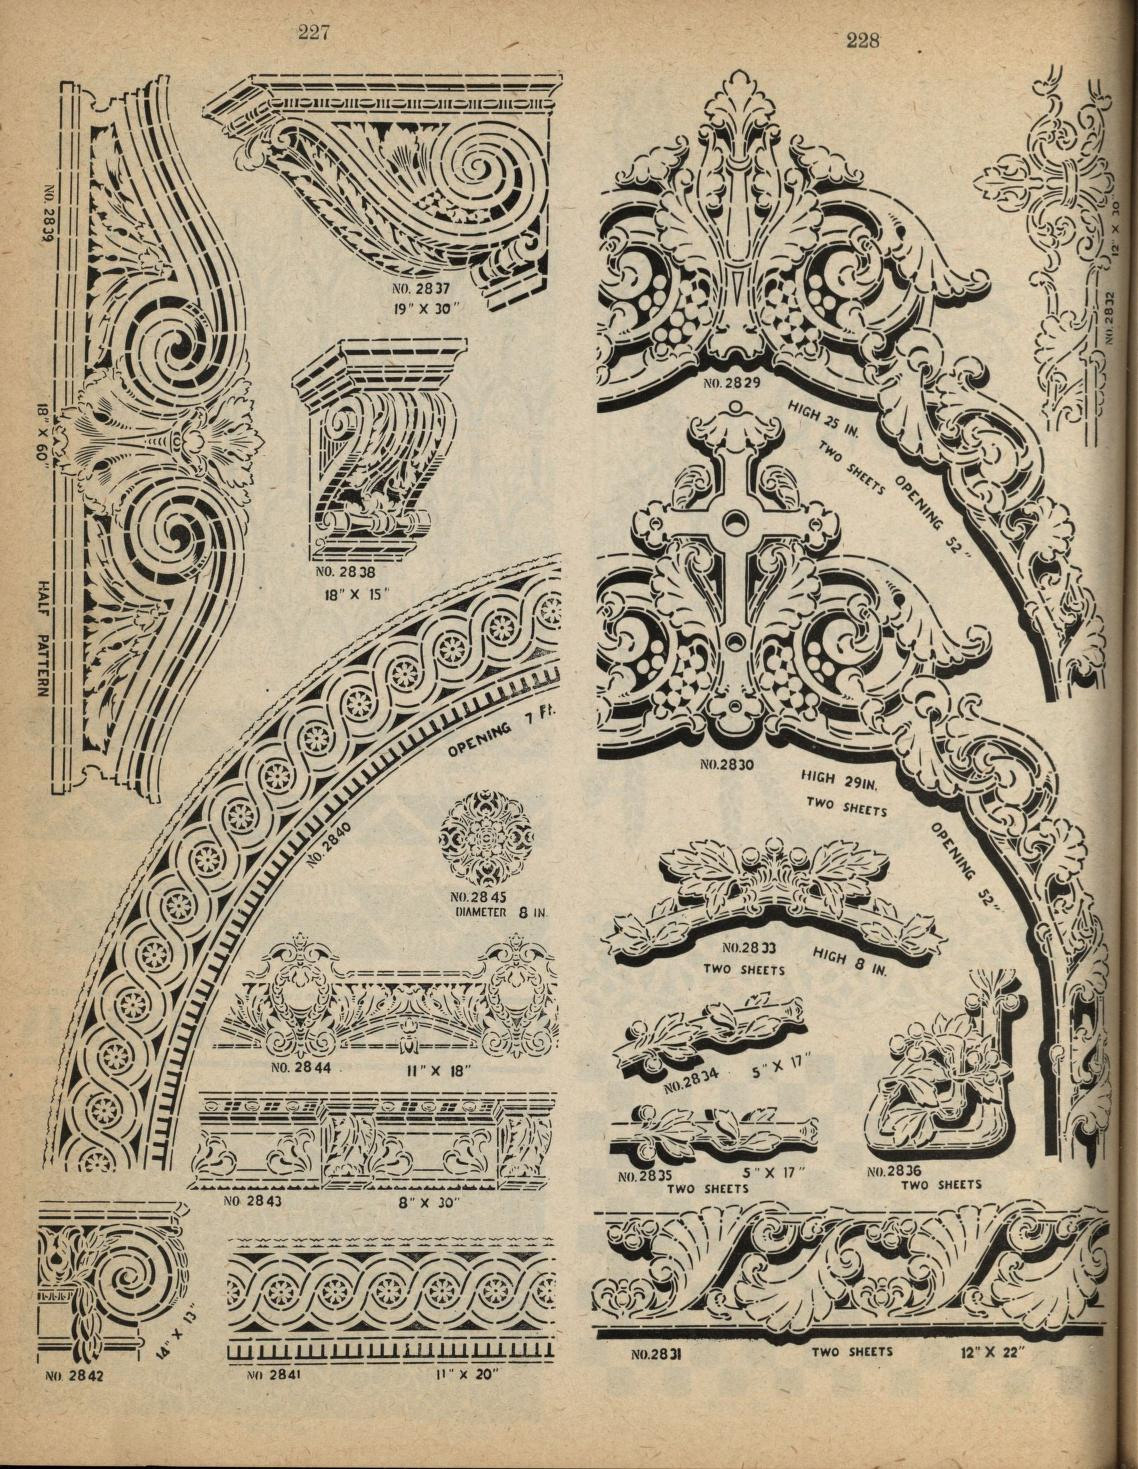 227
228
NO. 2839
18" X 60"
HALF PATTERN
NO. 2837
19" X 30"
NO. 2838
18" X 15"
OPENING 7 Ft.
NO. 2840
NO. 2845
DIAMETER 8 IN
NO. 2844
11" X 18"
NO 2843
8" X 30"
14" X 13"
NO. 2842
NO 2841
11" X 20"
12" X 30"
NO. 2832
NO. 2829
HIGH 25 IN.
TWO SHEETS
OPENING 52"
NO. 2830
HIGH 29IN.
TWO SHEETS
OPENING 52"
NO. 2833
TWO SHEETS
HIGH 8 IN.
NO. 2834
5" X 17"
NO. 2835
5" X 17"
TWO SHEETS
NO. 2836
TWO SHEETS
NO. 2831
TWO SHEETS
12" X 22"